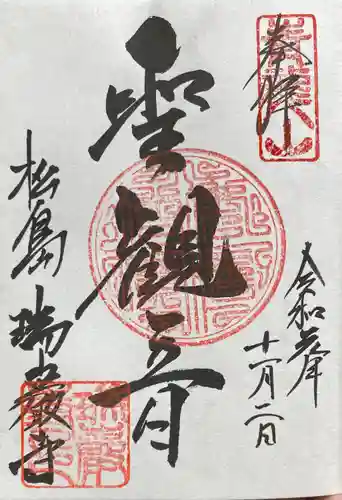 奉拝
令和元年
十一月二日
聖観音
松島 瑞巌寺